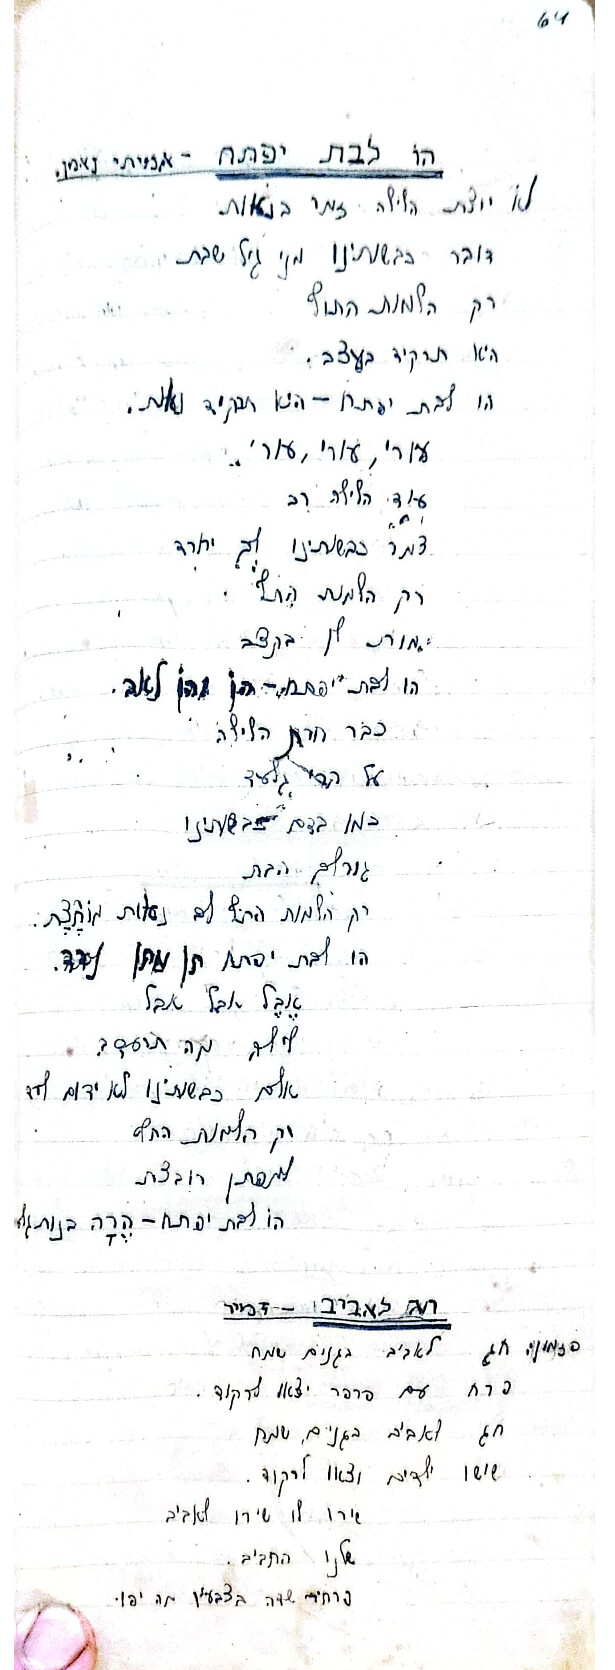 64
הו לבת יפתח - נעימן.
לא יוצת הלילה זמר בנאות
דובר כבשותינו מני גיל שבת
רק הלמות התוף
היא תרקיד בעצב.
הו לבת יפתח - היא תרקיד נאות.
עורי, עורי, עורי..
עוד הלילה רב
צמר כבשותינו לך יארד
רק הלמות התוף.
לן בקצב
הו לבת יפתח - הן לאב.
כבר חרת הלילה
על הרי גלעד
כמו בדם כבשותינו
גורלך הבת
רק הלמות התוף לב נעלות מוחצת.
הו לבת יפתח תן מתן נדר.
אבל אבל אבל
לילך מה תרעד
אלם כבשותינו לא ידום לעד
רק הלמות התוף
למפתן רובצת
הו לבת יפתח - הרה בנות גיל
חג לאביב - דפניר
פזמון: חג לאביב בגנים שמח
פרח עם פרפר יצאו לרקוד.
חג לאביב בגנים, שמח
שישו ילדים וצאו לרקוד.
שירו לו שירו לאביב
שלנו החביב.
פרחי שדה בצבעין מה יפו.